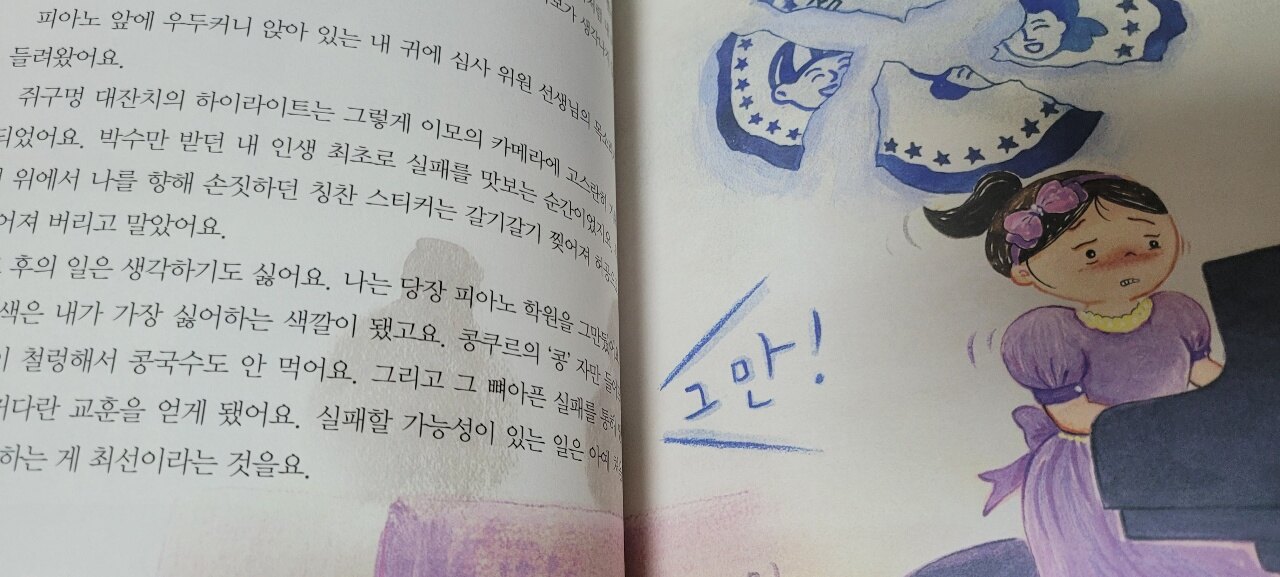 피아노 앞에 우두커니 앉아 있는 내 귀에 심사 위원 선생님의
들려왔어요.
쥐구멍 대잔치의 하이라이트는 그렇게 이모의 카메라에 고스란히
되었어요. 박수만 받던 내 인생 최초로 실패를 맛보는 순간이었지요.
위에서 나를 향해 손짓하던 칭찬 스티커는 갈기갈기 찢어져
버리고 말았어요.
후의 일은 생각하기도 싫어요. 나는 당장 피아노 학원을 그만뒀어요.
내가 가장 싫어하는 색깔이 됐고요. 콩쿠르의 '콩' 자만
철렁해서 콩국수도 안 먹어요. 그리고 그 뼈아픈 실패를 통해
커다란 교훈을 얻게 됐어요. 실패할 가능성이 있는 일은 아예
하는 게 최선이라는 것을요.
그만!